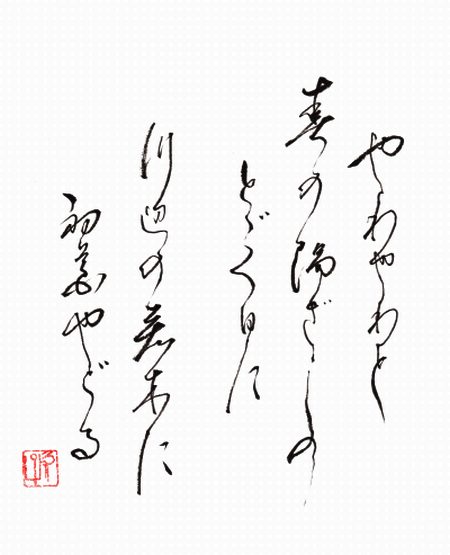 やわやわと
春の陽ざしの
とゞく日に
川辺の老木に
初花やどる